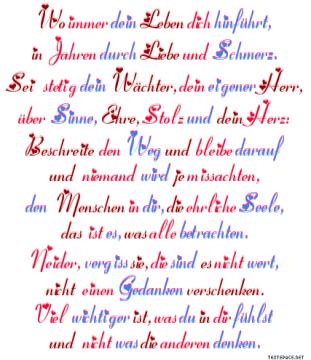 Wo immer dein Leben dich hinführt,
in Jahren durch Liebe und Schmerz.
Sei stetig dein Wächter, dein eigener Herr,
über Sinne, Ehre, Stolz und dein Herz:
Beschreite den Weg und bleibe darauf
und niemand wird je missachten,
den Menschen in dir, die ehrliche Seele,
das ist es, was alle betrachten.
Neider, vergiss sie, die sind es nicht wert,
nicht einen Gedanken verschenken.
Viel wichtiger ist, was du in dir fühlst
und nicht was die anderen denken.
TEXTSPACE.NET